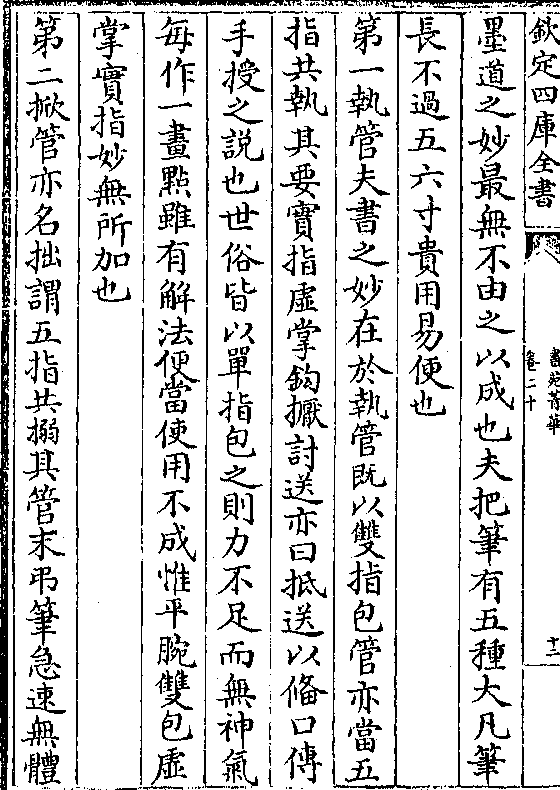 欽定四庫全書
書苑菁華
卷二十
十一
墨道之妙最無不由之以成也夫把筆有五種大凡筆
長不過五六寸貴用易便也
第一執管夫書之妙在於執管既以雙指包管亦當五
指共執其要實指虛掌鈎擫討送亦曰抵送以俻口傳
手授之説也世俗皆以單指包之則力不足而無神氣
每作一畫㸃雖有解法便當使用不成惟平腕雙包虛
掌實指妙無所加也
第二掀管亦名拙謂五指共搦其管末弔筆急速無體